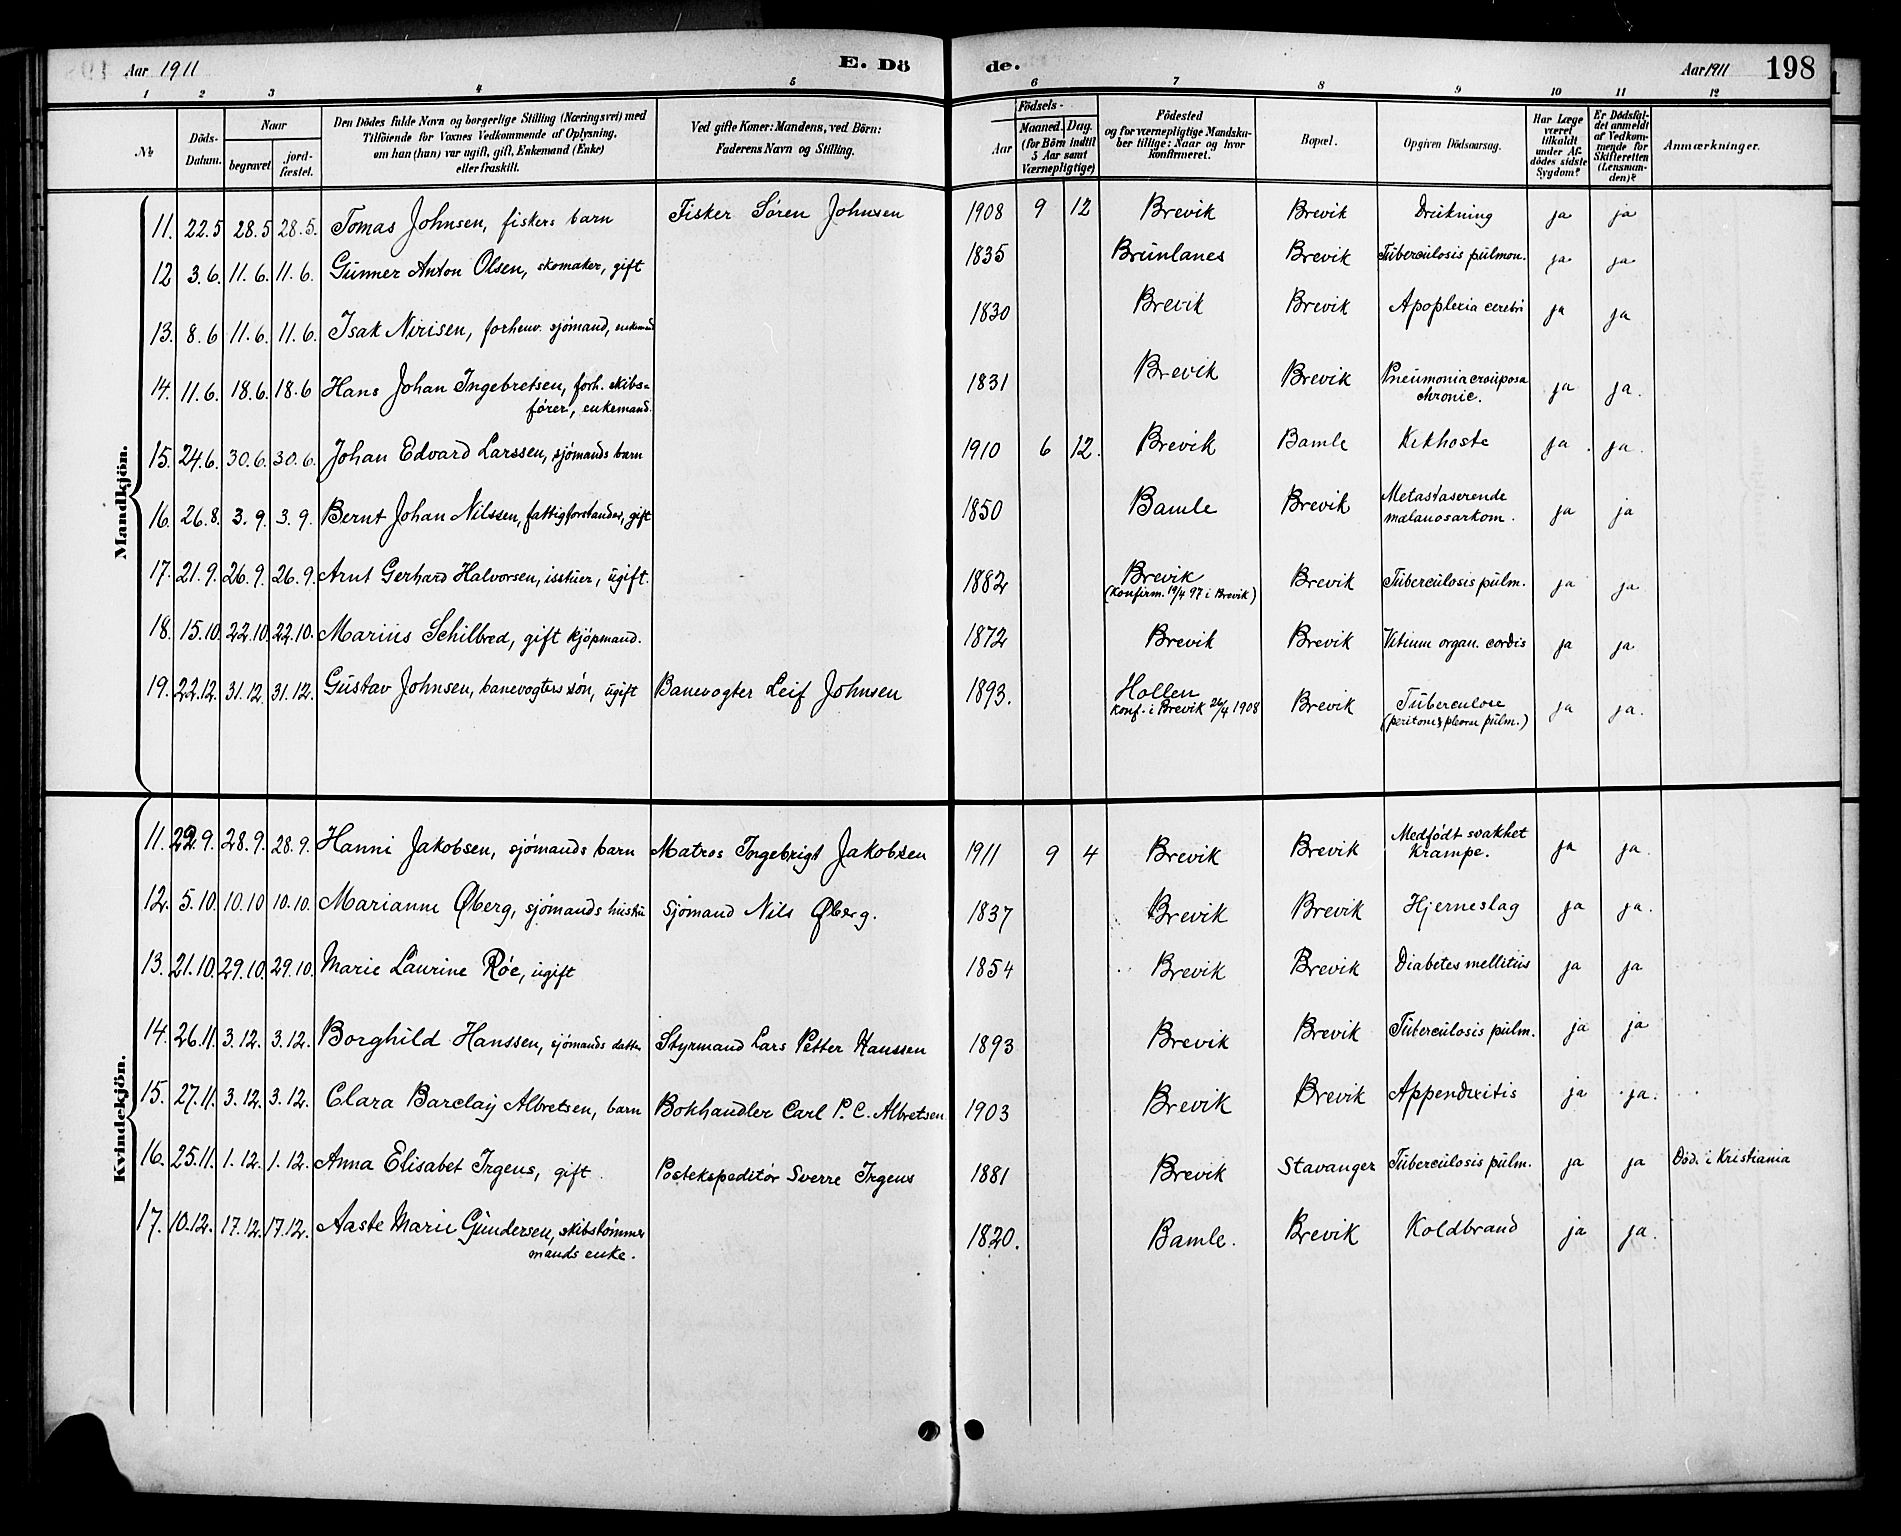 Aar 1911 E. Dö de. Aar 1911 198
1 2 3 4 5 6 7 8 9 10 11 12
№ Döds-Datum. Naar begravet jordfæstet. Den Dödes fulde Navn og borgerlige Stilling (Næringsvei) med Tilföiende for Voxnes Vedkommende af Oplysning, om han (hun) var ugift, gift, Enkemand (Enke) eller fraskilt. Ved gifte Koner: Mandens, ved Börn: Faderens Navn og Stilling. Födsels- Aar Maaned. Dag. (for Börn indtil 5 Aar samt Værnepligtige) Födested og for værnepligtige Mandskaber tillige: Naar og hvor konfirmeret. Bopæl. Opgiven Dödsaarsag. Har Læge været tilkaldt under Afdödes sidste Sygdom? Er Dödsfaldet anmeldt af Vedkommende for Skifteretten (Lensmanden)? Anmærkninger.
Mandkjön.
11. 22.5 28.5 28.5. Tomas Johnsen, fiskers barn Fisker Sören Johnsen 1908 9 12 Brevik Brevik Drukning ja ja
12 3.6. 11.6. 11.6. Gunner Anton Olsen, skomaker, gift 1835 Brunlanes Brevik Tuberculosis pulmon. ja ja
13. 8.6 11.6. 11.6. Isak Nirisen, forhenv. sjömand, enkemand 1830 Brevik Brevik Apoplexia cerebri ja ja
14. 11.6. 18.6. 18.6 Hans Johan Ingebretsen, forh. skibs- 1831 Brevik Brevik Pneumonia crouposa ja ja.
förer, enkemand. chronic.
15. 24.6. 30.6. 30.6. Johan Edvard Larssen, sjömands barn 1910 6 12. Brevik Bamle Kikhoste ja. ja.
16. 26.8. 3.9. 3.9. Bernt Johan Nilssen, fattigforstander, gift 1850 Bamle Brevik Metastaserende ja ja
melanosarkom.
17. 21.9. 26.9. 26.9. Arnt Gerhard Halvorsen, isstuer, ugift. 1882 Brevik Brevik Tuberculosis pulm. ja ja
(Konfirm. 19/4 97 i Brevik)
18. 15.10. 22.10. 22.10. Marius Schilbred, gift kjöpmand. 1872 Brevik Brevik Vitium organ. cordis ja ja
19. 22.12. 31.12. 31.12. Gustav Johnsen, banevogters sön, ugift Banevogter Leif Johnsen 1893. Hollen Brevik Tuberculose ja ja.
Konf. i Brevik 26/4 1908 (peritone & pleorae pulm.)
Kvindekjön.
11. 22.9. 28.9. 28.9. Hanni Jakobsen, sjömands barn Matros Ingebrigt Jakobsen 1911 9 4 Brevik Brevik Medfödt svakhet ja ja.
Krampe.
12. 5.10. 10.10 10.10. Marianne Øberg, sjömands hustru Sjömand Nils Øberg. 1837 Brevik Brevik Hjerneslag ja ja.
13. 21.10. 29.10. 29.10. Marie Laurine Röe, ugift 1854 Brevik Brevik Diabetes mellitus ja ja
14. 26.11. 3.12. 3.12. Borghild Hanssen, sjömands datter Styrmand Lars Petter Hanssen 1893 Brevik Brevik Tuberculosis pulm. ja ja
15. 27.11. 3.12. 3.12. Clara Barclay Albretsen, barn Bokhandler Carl P. C. Albretsen 1903 Brevik Brevik Appendixitis ja ja.
16. 25.11. 1.12. 1.12. Anna Elisabet Irgens, gift. Postekspeditör Sverre Irgens 1881 Brevik Stavanger Tuberculosis pulm. ja ja Död i Kristiania
17. 10.12. 17.12. 17.12. Aaste Marie Gundersen, skibstömmer 1820. Bamle. Brevik Koldbrand ja ja.
mands enke.